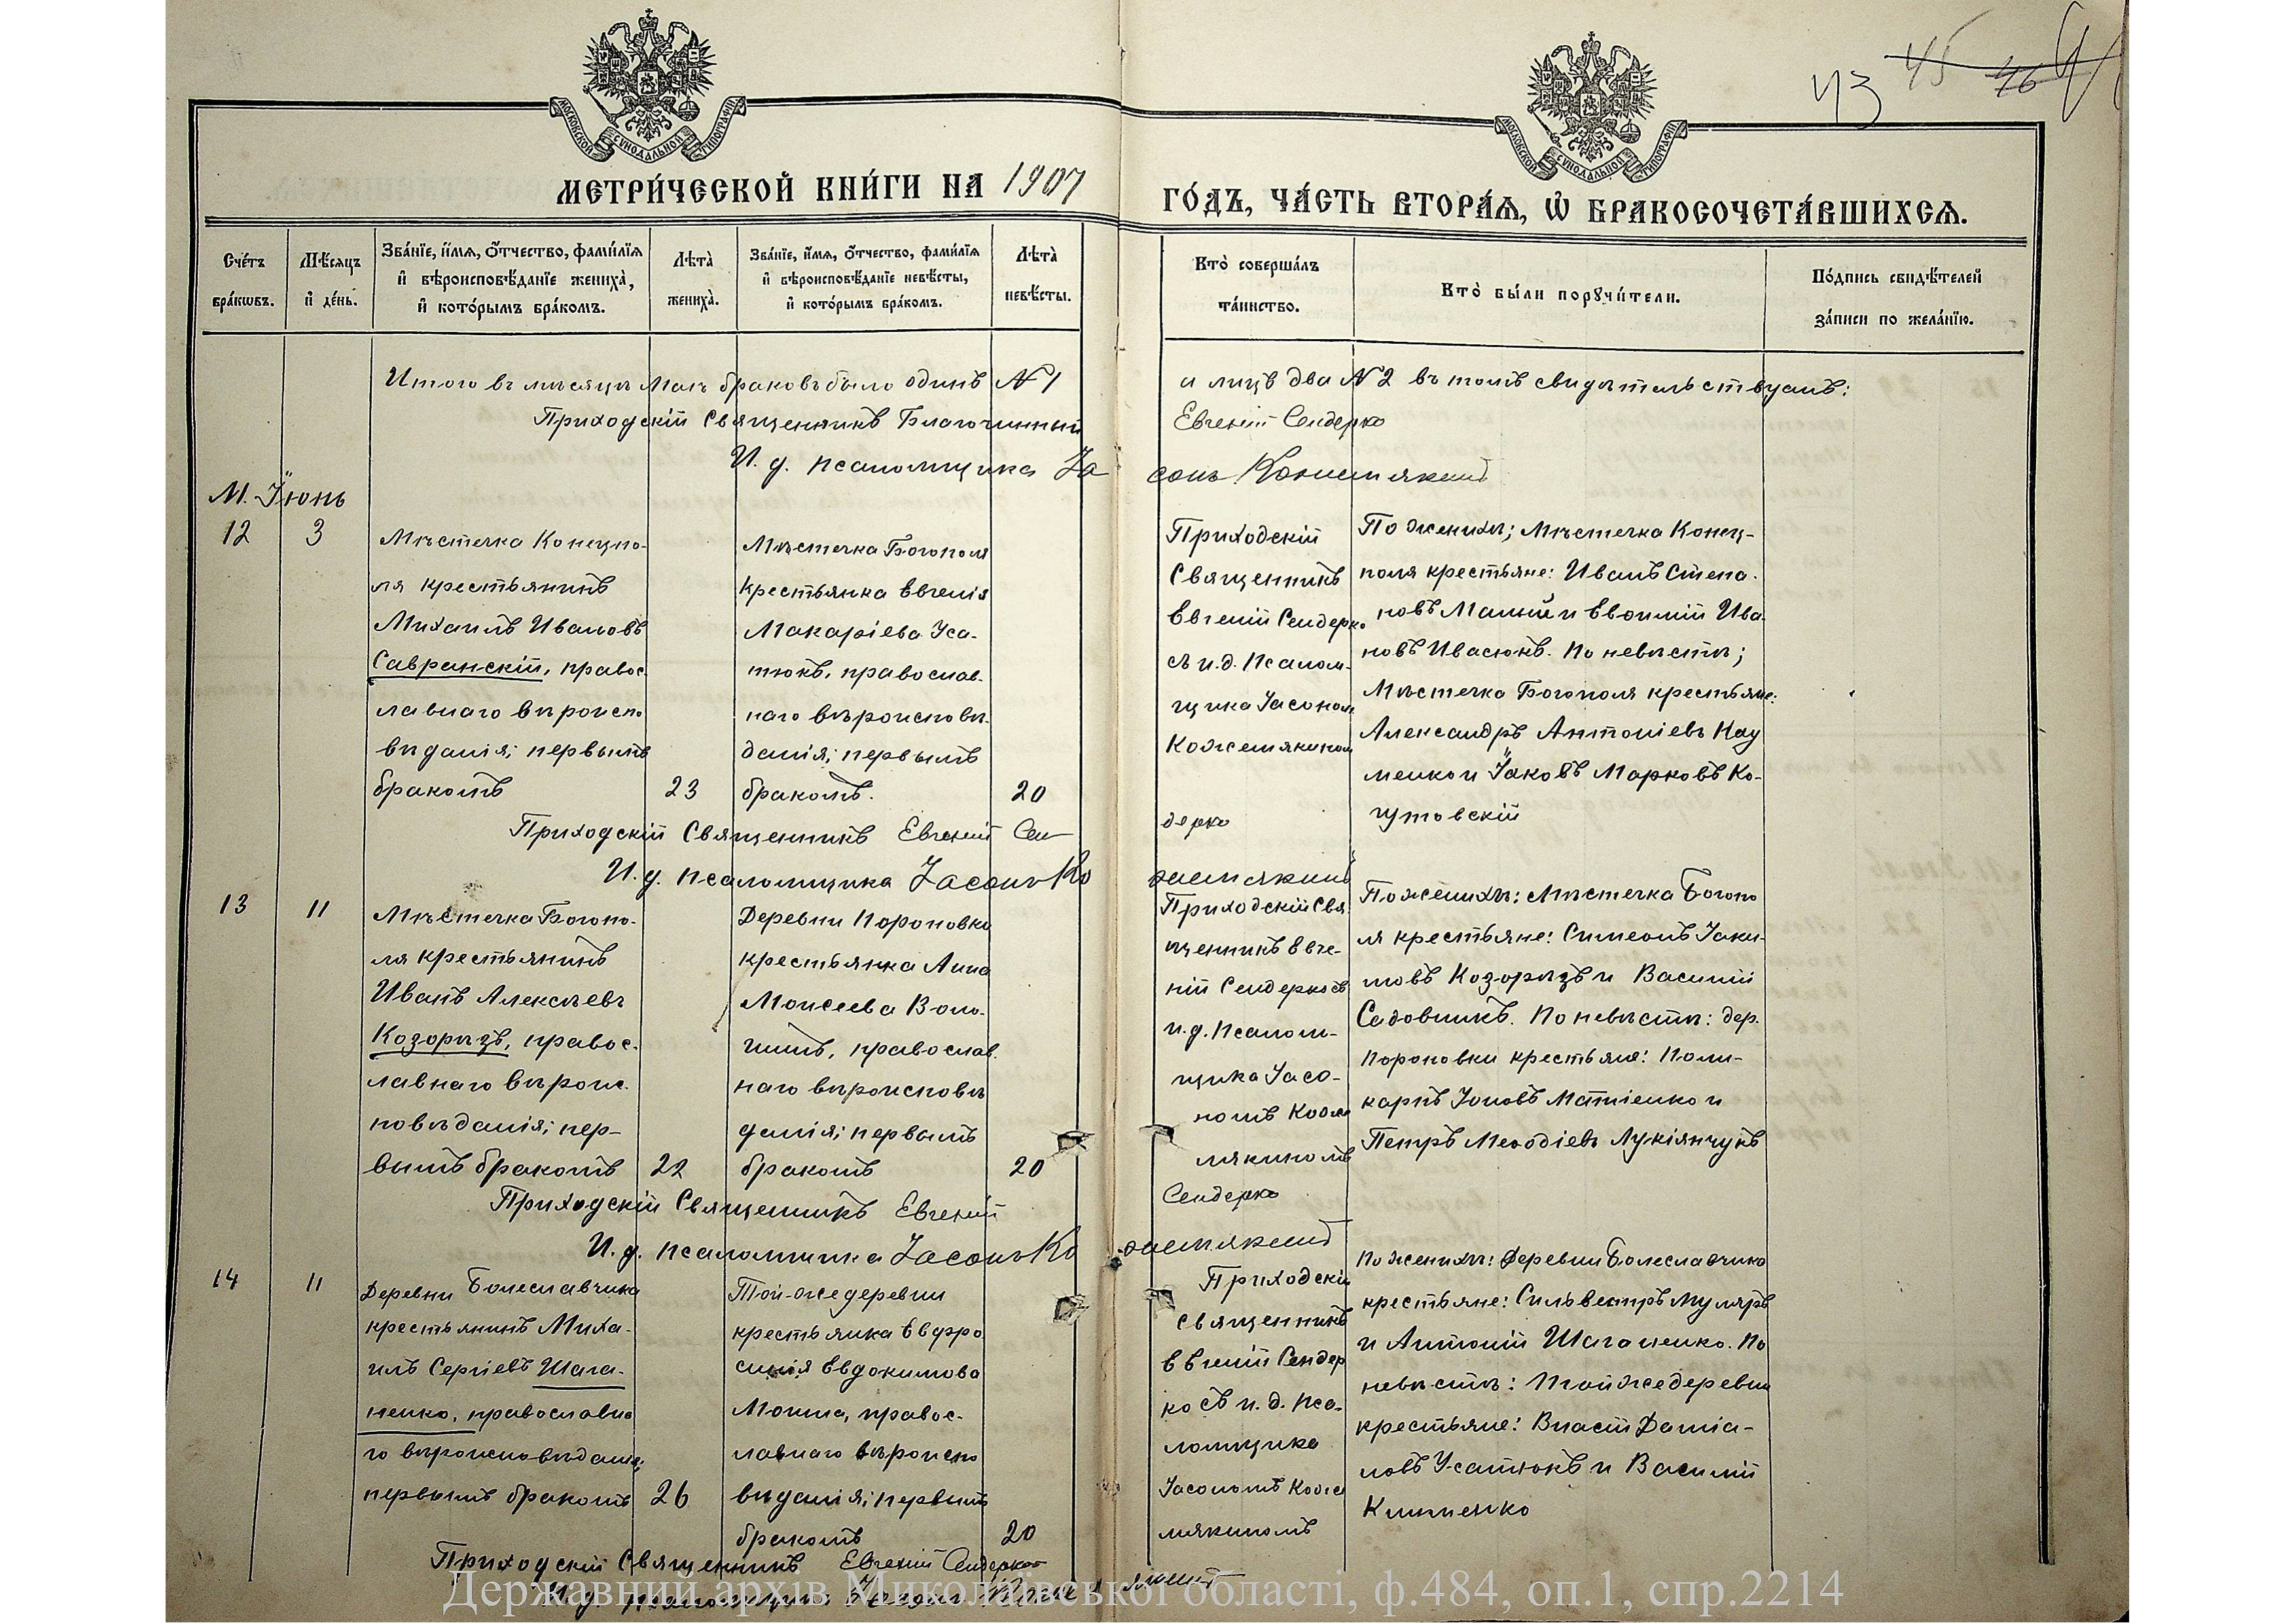 43 45 46
МОСКОВСКОЙ СУНОДАЛЬНОЙ ТИПОГРАФІИ
МОСКОВСКОЙ СУНОДАЛЬНОЙ ТИПОГРАФІИ
МЕТРИ́ЧЕСКОЙ КНИ́ГИ НА 1907
ГО́ДЪ, ЧА́СТЬ ВТОРА́Ѧ, Ѡ БРАКОСОЧЕТА́ВШИХСѦ.
Сче́тъ
бра́кωвъ.
Мѣ́сяцъ
и҆ де́нь.
Зва́нїе, и҆́мѧ, ѻ҆́тчество, фами́лїѧ
и҆ вѣроисповѣ́данїе жениха̀,
и҆ кото́рымъ бра́комъ.
Лѣта̀
жениха̀.
Зва́нїе, и҆́мѧ, ѻ҆́тчество, фами́лїѧ
и҆ вѣроисповѣ́данїе невѣ́сты,
и҆ кото́рымъ бра́комъ.
Лѣта̀
невѣ́сты.
Кто̀ соверша́лъ
та́инство.
Кто̀ бы́ли порꙋчи́тели.
По́дпись свидѣ́телей
за́писи по жела́нїю.
Итого въ мѣсяцѣ Маѣ браковъ было одинъ №1
а лицъ два №2 въ томъ свидѣтельствуемъ:
Приходскій Священникъ Благочинный
Евгеній Сендерко
И. д. псаломщика Іа
сонъ Кожемякинъ
М. Іюнь
12
3
Мѣстечка Конецпо-
ля крестьянинъ
Михаилъ Ивановъ
Савранскій, правос
лавнаго вѣроиспо
вѣданія; первымъ
бракомъ
23
Мѣстечка Богополя
крестьянка Евгенія
Макаріева Уса-
тюкъ, православ-
наго вѣроисповѣ-
данія; первымъ
бракомъ.
20
Приходскій
Священникъ
Евгеній Сендерко
съ и.д. Псалом-
щика Іасоном
Кожемякином
По женихѣ; Мѣстечка Конец-
поля крестьяне: Иванъ Степа-
новъ Малый и Евфимій Ива
новъ Ивасюкъ. По невѣстѣ;
Мѣстечка Богополя крестьяне:
Александръ Антоніевъ Нау
менко и Іаковъ Марковъ Ко-
гутовскій
Приходскій Священникъ Евгеній Сен
дерко
И. д. псаломщика Іасонъ Ко
жемякинъ
13
11
Мѣстечка Богопо-
ля крестьянинъ
Иванъ Алексѣевъ
Козорѣзъ, правос-
лавнаго вѣроис-
повѣданія; пер-
вымъ бракомъ
22
Деревни Пороновки
крестьянка Анна
Моисеева Воло-
шинъ, православ.
наго вѣроисповѣ
данія; первымъ
бракомъ
20
Приходскій Свя
щенникъ Евге-
ній Сендерко съ
и.д. Псалом-
щика Іасо-
номъ Коже
мякиномъ
По женихѣ: Мѣстечка Богопо
ля крестьяне: Симеонъ Іаки-
мовъ Козорѣзъ и Василій
Садовникъ. По невѣстѣ: дер.
Пороновки крестьяне: Поли-
карпъ Іоновъ Матіенко и
Петръ Меѳодіевъ Лукіянчукъ
Приходскій Священникъ Евгеній
Сендерко
И. д. псаломщика Іасонъ Ко
жемякинъ
14
11
Деревни Болеславчика
крестьянинъ Миха-
илъ Сергіевъ Шага-
ненко, православна
го вѣроисповѣданія;
первымъ бракомъ
26
Той-же деревни
крестьянка Евфро
синія Евдокимова
Моина, правос-
лавнаго вѣроиспо
вѣданія; первымъ
бракомъ
20
Приходскій
священникъ
Евгеній Сендер
ко съ и. д. Пса-
ломщика
Іасономъ Коже
мякиномъ
По женихѣ: Деревни Болеславчика
крестьяне: Сильвестръ Муляръ
и Антоній Шаганенко. По
невѣстѣ: Той же деревни
крестьяне: Власій Даміа-
новъ Усатюкъ и Василій
Книпенко
Приходскій Священникъ Евгеній Сендерко
И. д. псаломщика Іасонъ Кожемякинъ
Державний архів Миколаївської області, ф.484, оп.1, спр.2214